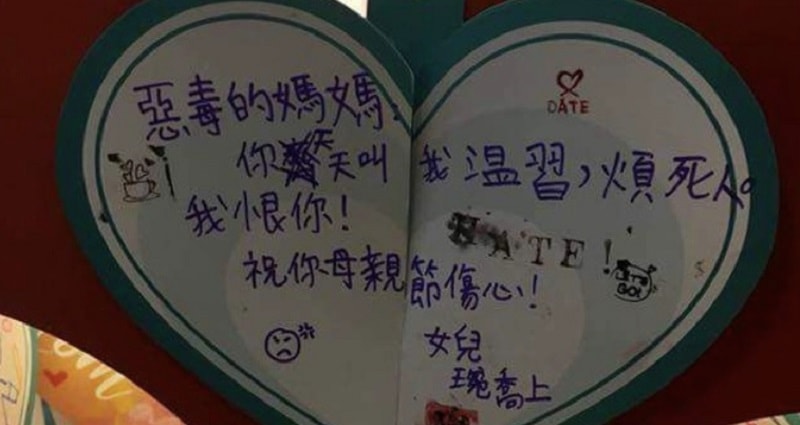 惡毒的媽媽:
DATE
你天天叫我温習,煩死人。
我恨你!
HATE!
祝你母親節傷心!
女兒
琬喬上